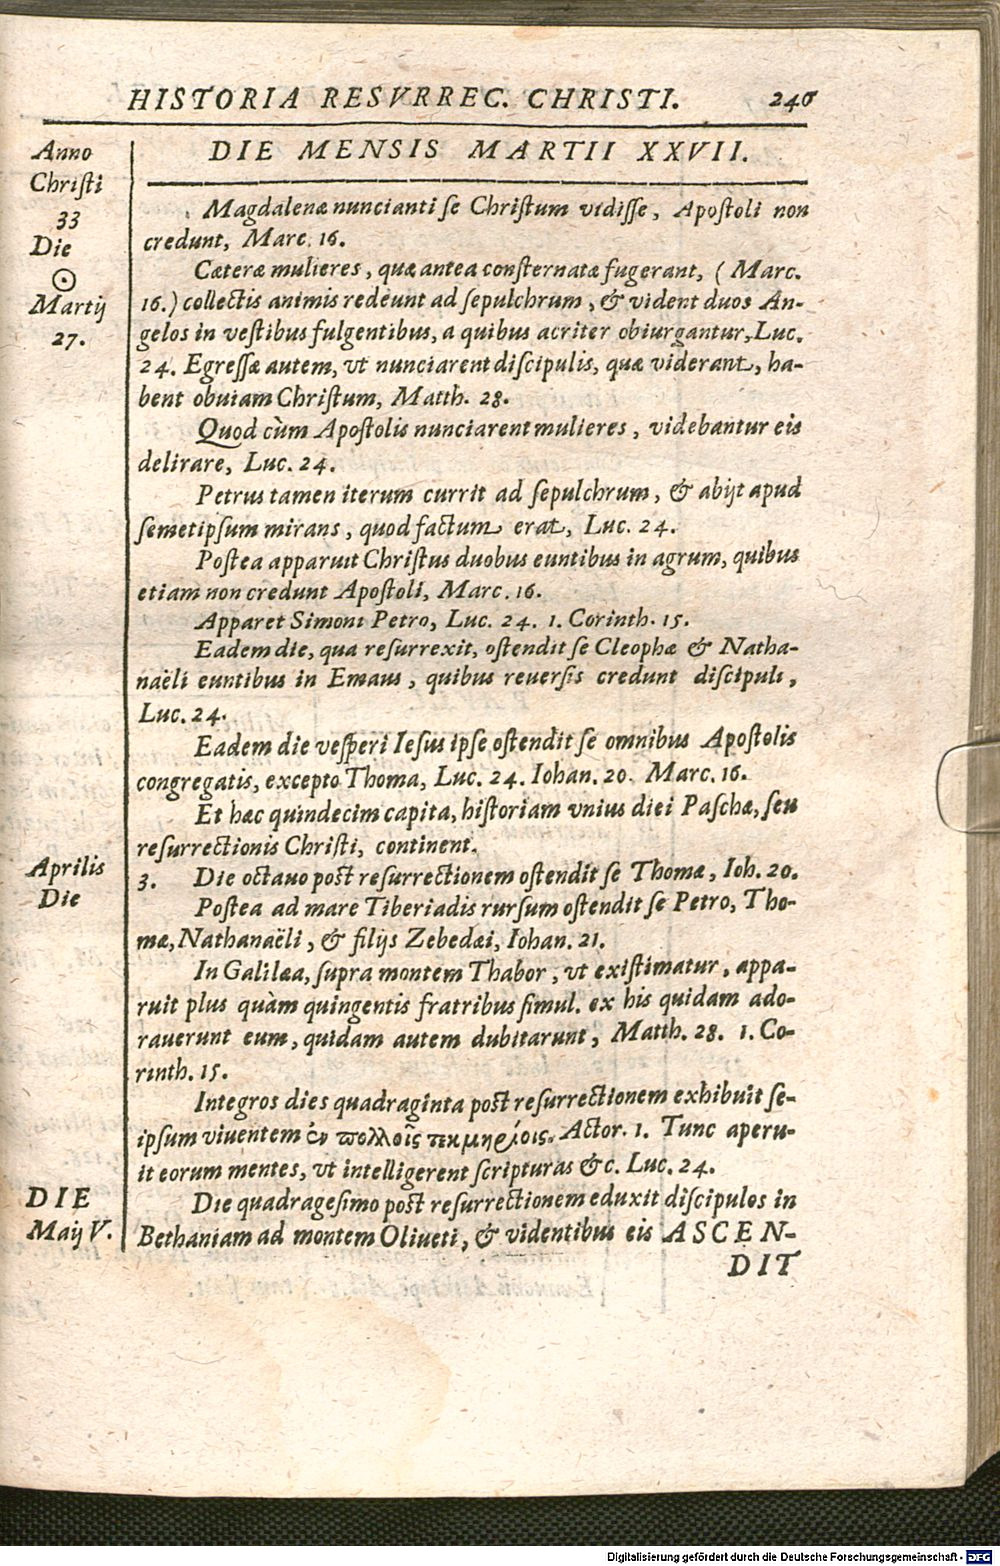 HISTORIA RESVRREC. CHRISTI. 246
DIE MENSIS MARTII XXVII.
Anno
Christi
33
Die
☉
Martij
27.
Magdalenæ nuncianti se Christum vidisse, Apostoli non
credunt, Marc. 16.
Cæteræ mulieres, quæ antea consternatæ fugerant, (Marc.
16.) collectis animis redeunt ad sepulchrum, & vident duos An-
gelos in vestibus fulgentibus, a quibus acriter obiurgantur, Luc.
24. Egressæ autem, vt nunciarent discipulis, quæ viderant, ha-
bent obuiam Christum, Matth. 28.
Quod cùm Apostolis nunciarent mulieres, videbantur eis
delirare, Luc. 24.
Petrus tamen iterum currit ad sepulchrum, & abijt apud
semetipsum mirans, quod factum erat, Luc. 24.
Postea apparuit Christus duobus euntibus in agrum, quibus
etiam non credunt Apostoli, Marc. 16.
Apparet Simoni Petro, Luc. 24. 1. Corinth. 15.
Eadem die, qua resurrexit, ostendit se Cleophæ & Natha-
naëli euntibus in Emaus, quibus reuersis credunt discipuli,
Luc. 24.
Eadem die vesperi Iesus ipse ostendit se omnibus Apostolis
congregatis, excepto Thoma, Luc. 24. Iohan. 20. Marc. 16.
Et hæc quindecim capita, historiam vnius diei Paschæ, seu
resurrectionis Christi, continent.
Aprilis
Die
3. Die octauo post resurrectionem ostendit se Thomæ, Ioh. 20.
Postea ad mare Tiberiadis rursum ostendit se Petro, Tho-
mæ, Nathanaëli, & filijs Zebedæi, Iohan. 21.
In Galilæa, supra montem Thabor, vt existimatur, appa-
ruit plus quàm quingentis fratribus simul. ex his quidam ado-
rauerunt eum, quidam autem dubitarunt, Matth. 28. 1. Co-
rinth. 15.
Integros dies quadraginta post resurrectionem exhibuit se-
ipsum viuentem ἐν πολλοῖς τεκμηρίοις. Actor. 1. Tunc aperu-
it eorum mentes, vt intelligerent scripturas &c. Luc. 24.
DIE
Maij V.
Die quadragesimo post resurrectionem eduxit discipulos in
Bethaniam ad montem Oliueti, & videntibus eis ASCEN-
DIT
Digitalisierung gefördert durch die Deutsche Forschungsgemeinschaft - DFG